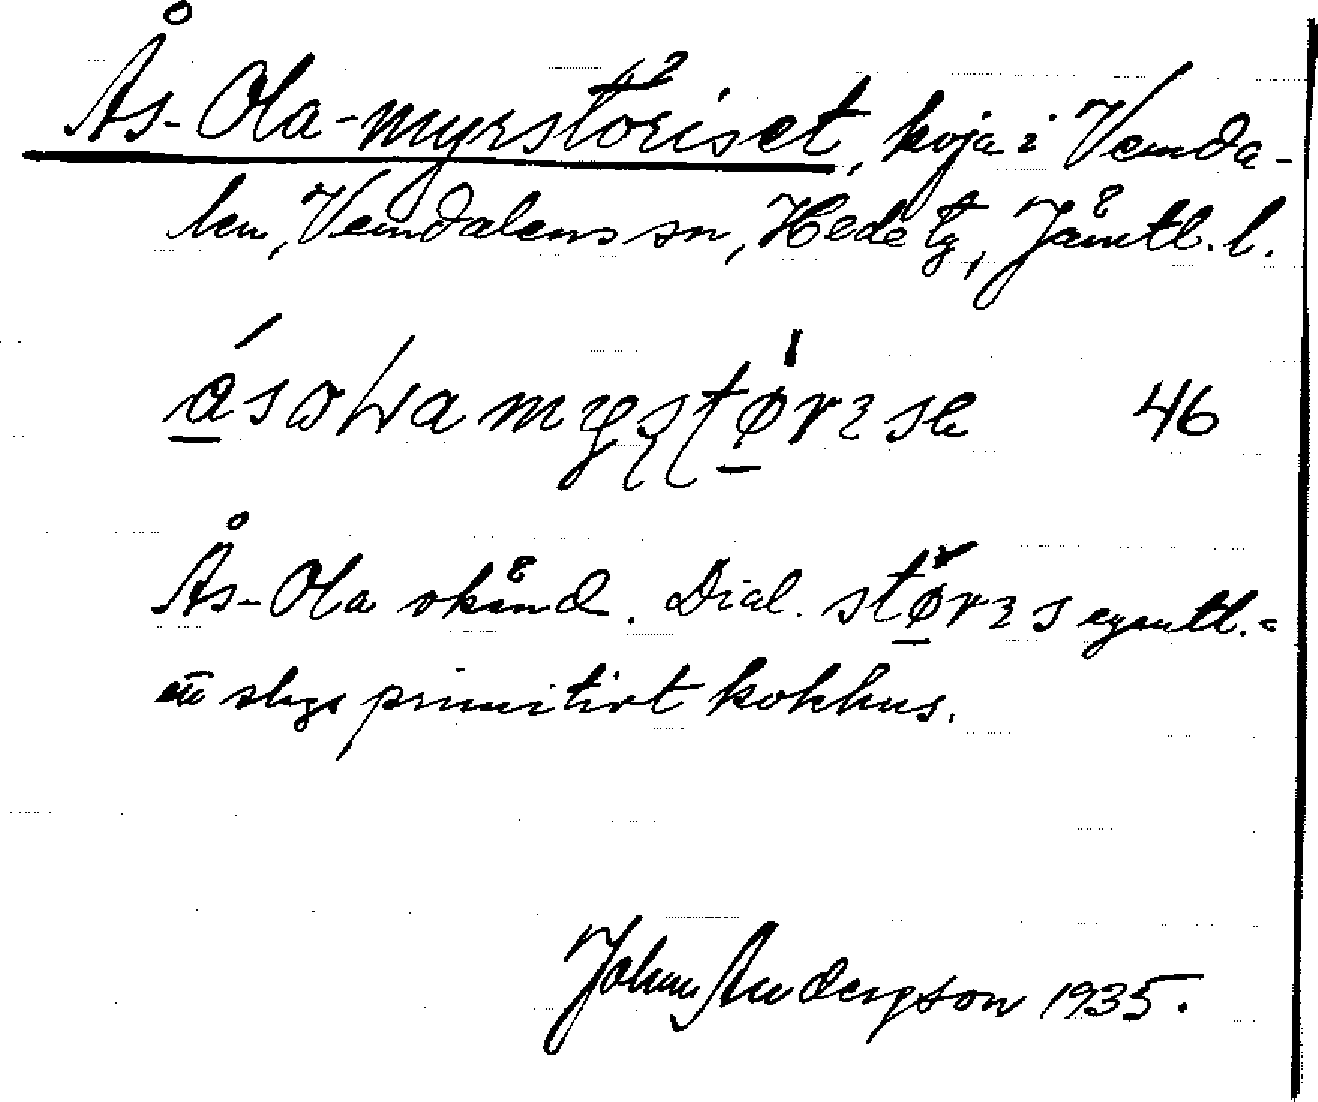 Ås-Ola-myrstöriset, koja i Vemda-
len, Vemdalens sn, Hede tg, Jämtl. l.
46
Ås-Ola okänd. Dial. egentl. =
ett slags primitivt kokhus.
Johan Anderson 1935.